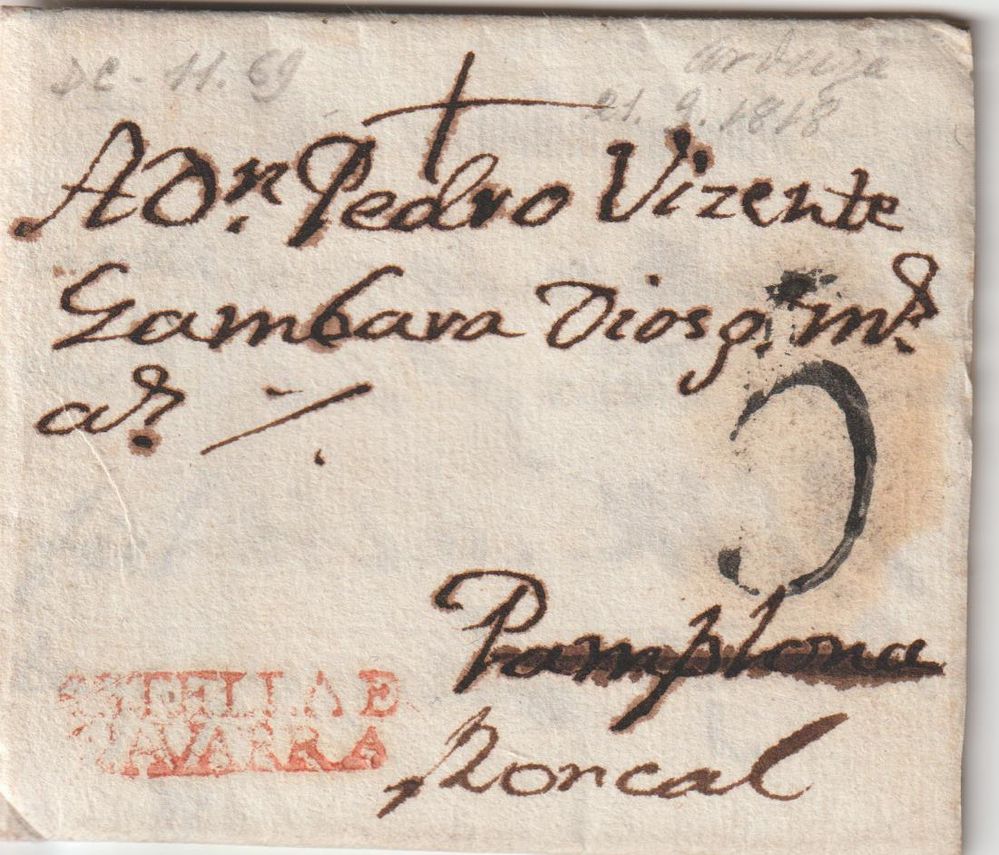 DC-11.69
21.9.1818
A Dn. Pedro Vizente
Gambara Dios g. ms.
as.
5
Pamplona
Roncal
ESTELLA E
NAVARRA